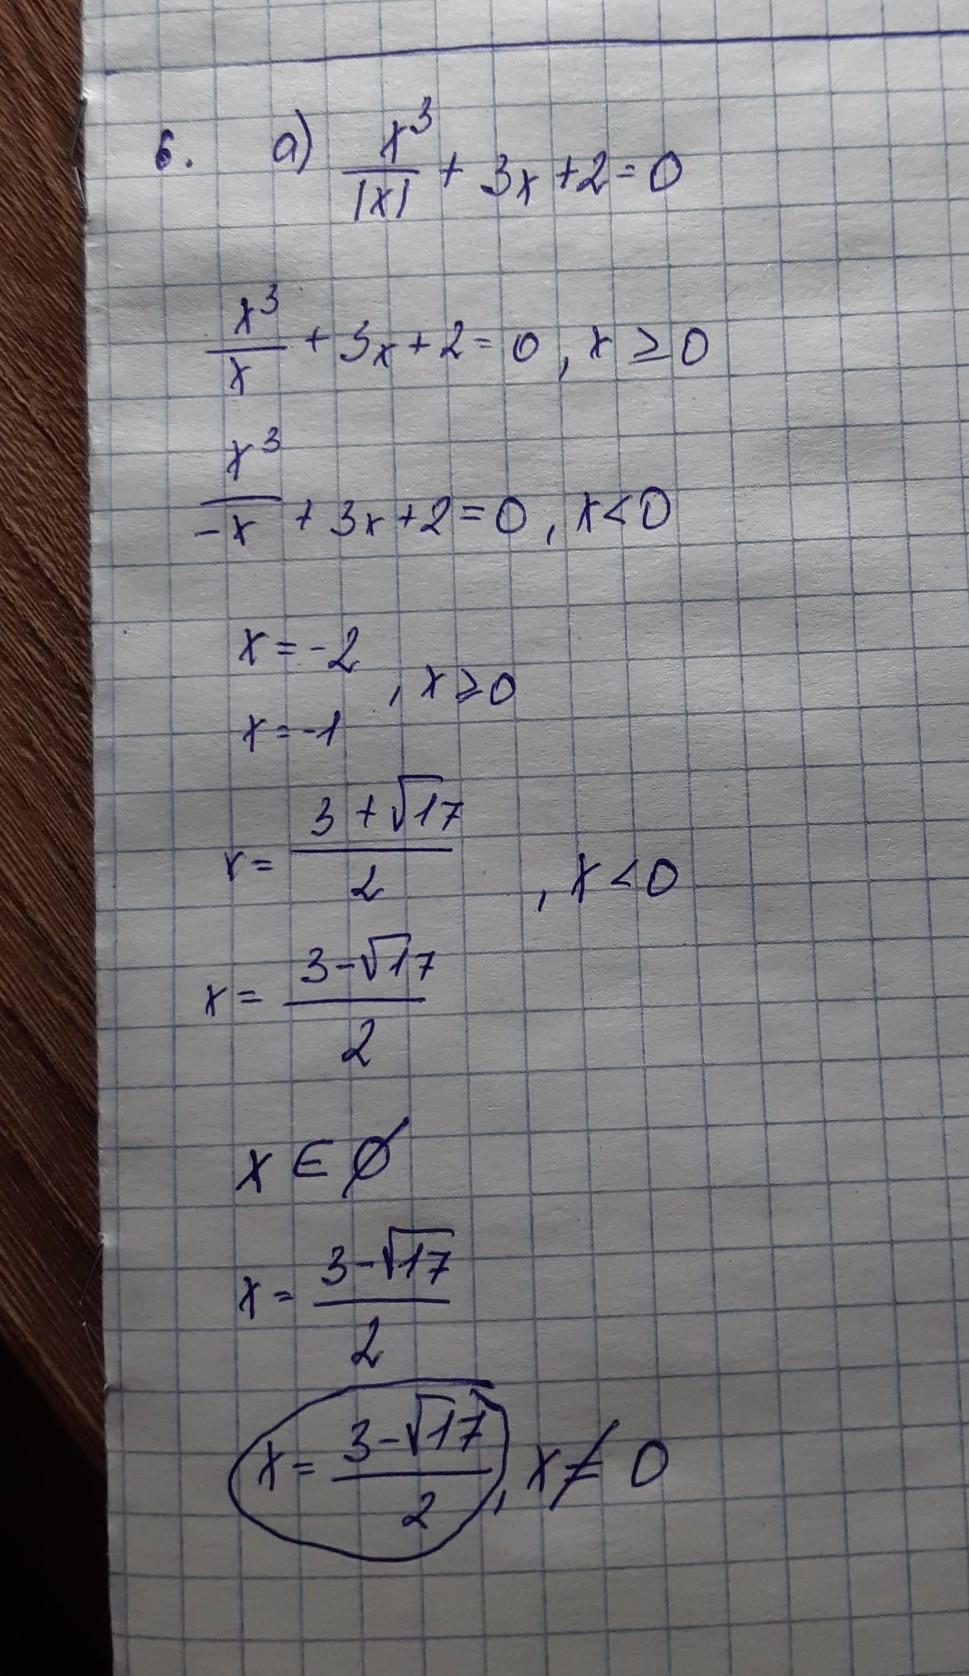 6. а) x³/|x| + 3x + 2 = 0
x³/x + 3x + 2 = 0, x ≥ 0
x³/-x + 3x + 2 = 0, x < 0
x = -2
, x ≥ 0
x = -1
x = (3 + √17)/2
, x < 0
x = (3 - √17)/2
x ∈ ∅
x = (3 - √17)/2
x = (3 - √17)/2, x ≠ 0